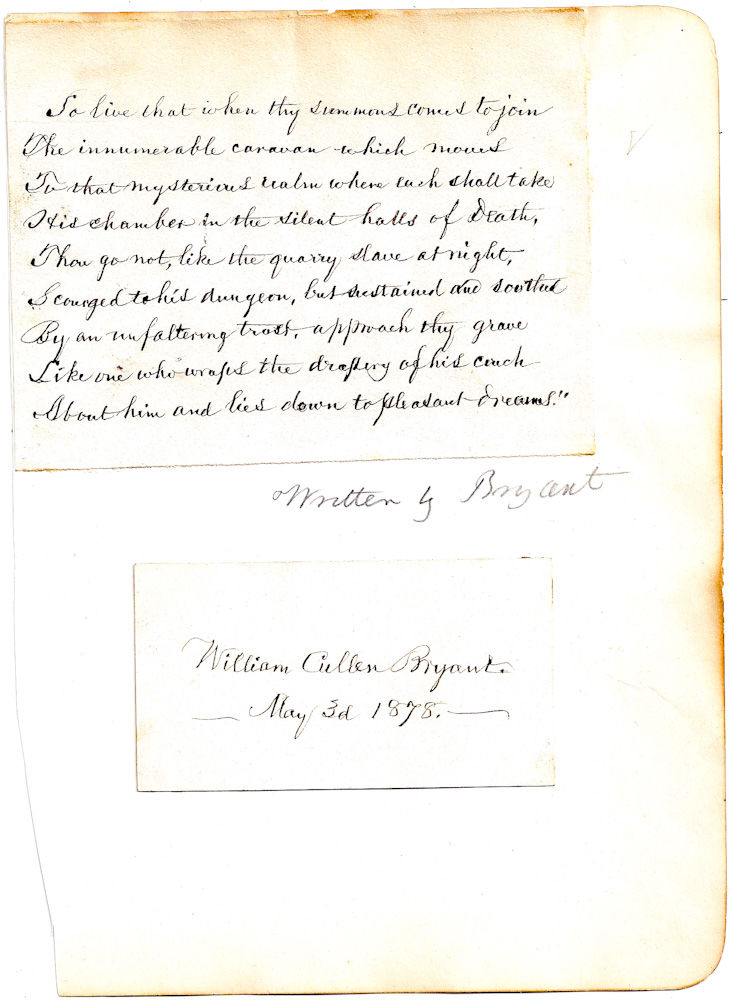 So live that when thy summons comes to join
The innumerable caravan which moves
To that mysterious realm where each shall take
His chamber in the silent halls of Death,
Thou go not, like the quarry slave at night,
Scourged to his dungeon, but sustained and soothed
By an unfaltering trust, approach thy grave
Like one who wraps the drapery of his couch
About him and lies down to pleasant dreams."
Written by Bryant
William Cullen Bryant.
— May 3d 1878. —